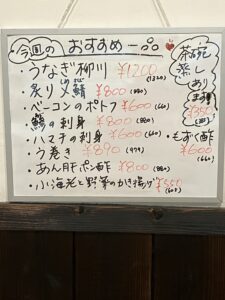 今週の おすすめ一品
・うなぎ柳川 ¥1200
(1320)
・炙り〆鯖 ¥800
(880)
・ベーコンのポトフ ¥600
(660)
・鯵の刺身 ¥800
(880)
・ハマチの刺身 ¥600
(660)
・う巻き ¥890
(979)
・あん肝ポン酢 ¥800
(880)
・小海老と野菜のかき揚げ ¥550
(605)
茶碗
蒸し
あり
ます
¥350
・もずく酢
¥600
(660)